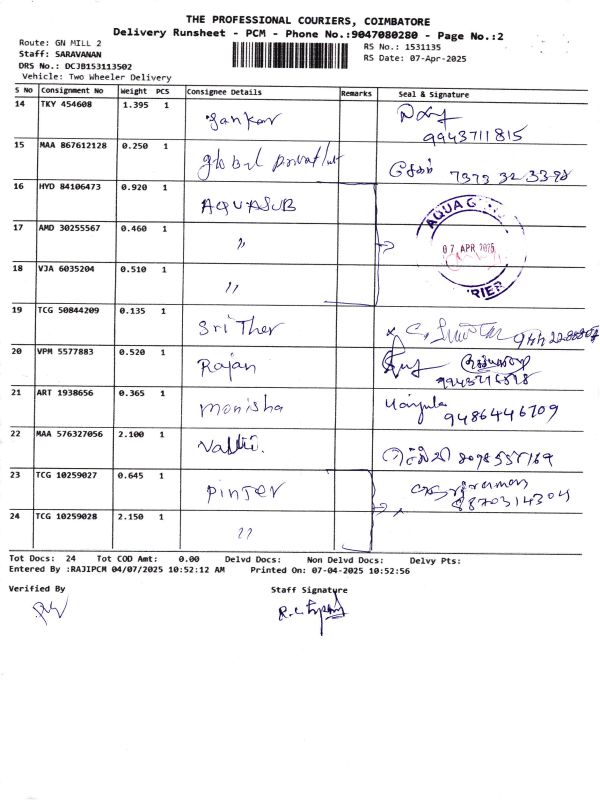 THE PROFESSIONAL COURIERS, COIMBATORE
Delivery Runsheet - PCM - Phone No.:9047080280 - Page No.:2
Route: GN MILL 2
Staff: SARAVANAN
DRS No.: DCJB153113502
Vehicle: Two Wheeler Delivery
RS No.: 1531135
RS Date: 07-Apr-2025
S No Consignment No Weight PCS Consignee Details Remarks Seal & Signature
14 TKY 454608 1.395 1 Sankar
9943711815
15 MAA 867612128 0.250 1 global
16 HYD 84106473 0.920 1 AQUASUB
AQUA
07 APR 2025
17 AMD 30255567 0.460 1 "
18 VJA 6035204 0.510 1 "
19 TCG 50844209 0.135 1 Sri Ther
20 VPM 5577883 0.520 1 Rajan
21 ART 1938656 0.365 1 Monisha
9486446709
22 MAA 576327056 2.100 1
23 TCG 10259027 0.645 1 Pinter
8870314304
24 TCG 10259028 2.150 1 "
Tot Docs: 24 Tot COD Amt: 0.00 Delvd Docs: Non Delvd Docs: Delvy Pts:
Entered By :RAJIPCM 04/07/2025 10:52:12 AM Printed On: 07-04-2025 10:52:56
Verified By Staff Signature